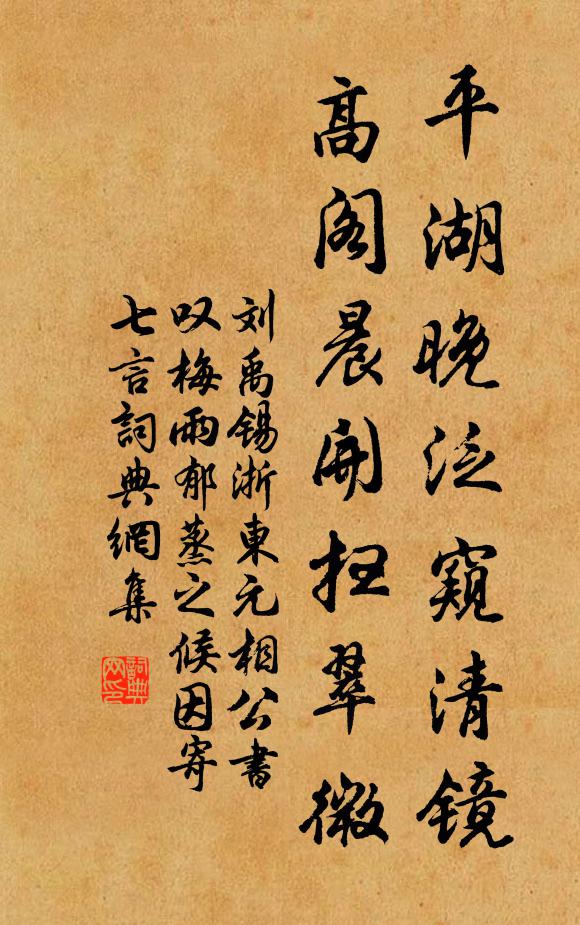 平湖晚泛窥清镜
高阁晨开扫翠微
刘禹锡浙东元相公书
叹梅雨郁蒸之候因寄
七言詞典網集
詞典
网印